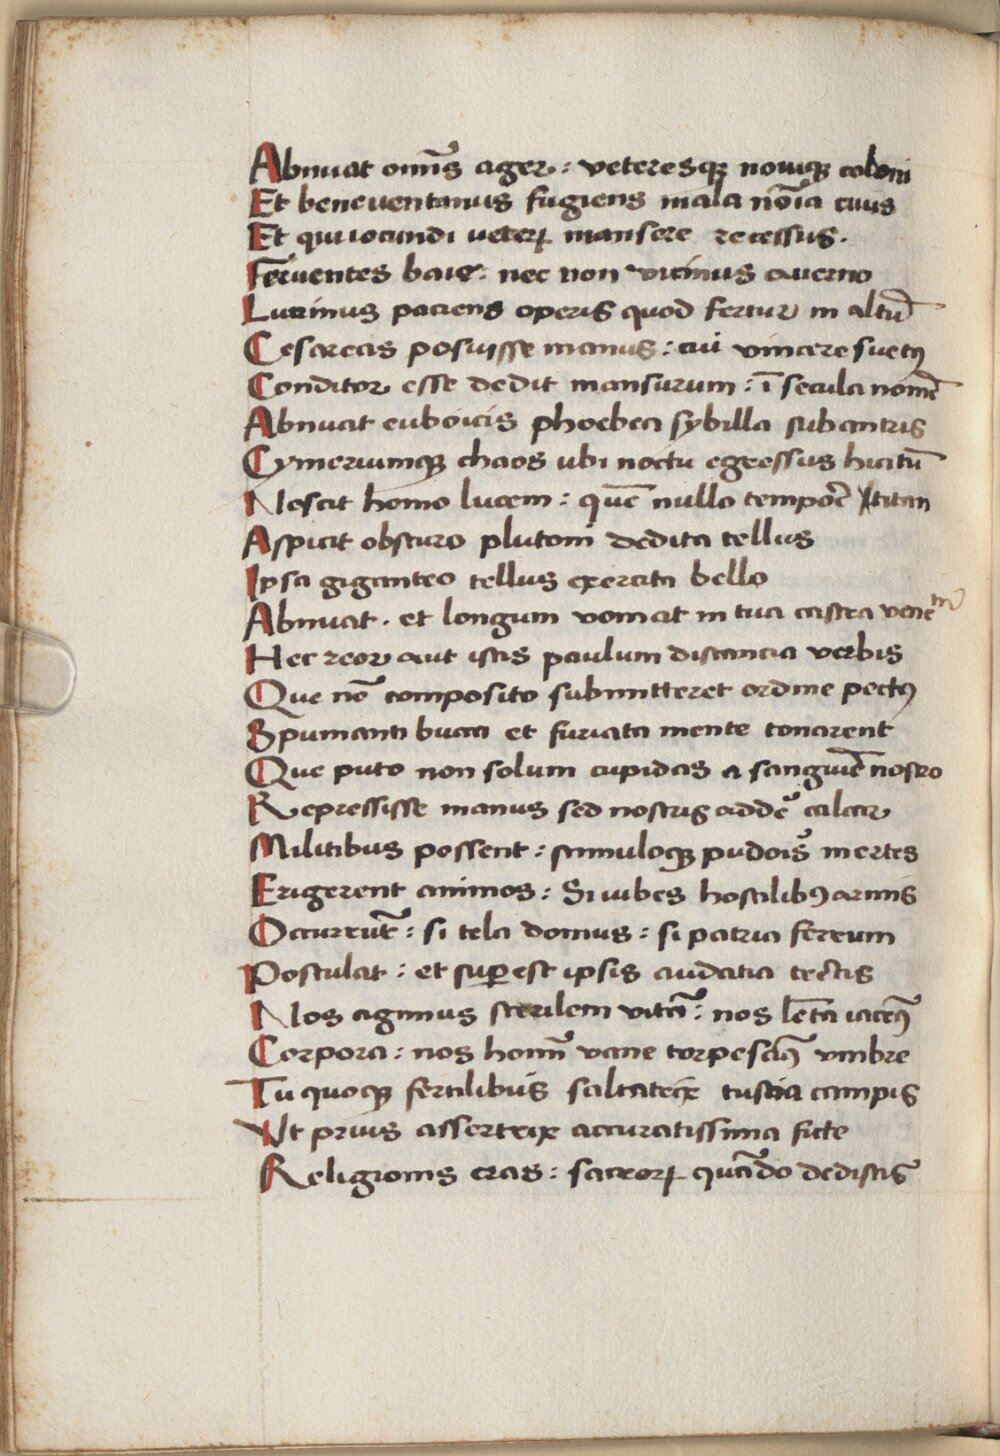 Abnuat om̄is ager : veteresqꝫ nouiqꝫ coloni
Et beneuentanus fugiens mala nōīa ciuis
Et qui iocundi ueteꝝ mansere recessus.
Feruentes baie : nec non vicinus auerno
Lucrinus paciens operis quod fertur in altū
Cesareas posuisse manus : cui vincere suetꝰ
Conditor esse dedit mansurum : ī secula nomē
Abnuat euboicis phoebea sybilla sub antris
Cymeriumqꝫ chaos ubi noctu egressus hiatū
Noscit homo lucem : quē nullo tempor̄ titan
Aspicit obscuro plutoni dedita tellus
Ipsa giganteo tellus exercita bello
Abnuat . et longum vomat in tua castra venenū
Hec reor aut istis paulum distancia verbis
Que nō composito submitteret ordine pectꝰ
Spumanti bucca et furiata mente tonarent
Que puto non solum cupidas a sanguiē nostro
Repressisse manus sed nostris adde᷒ calcar
Militibus possent : stimuloqꝫ pudoīs inertes
Erigerent animos : Si iubes hostilibꝰ armis
Occurrūt : si tela domus : si patria ferrum
Postulat : et suꝑest ipsis audatia tectis
Nos agimus sterilem vitā : nos lēta iacemꝰ
Corpora : nos homīn vane torpescimꝰ vmbre
Tu quoqꝫ fertilibus saltatrix tuscia campis
Vt prius assertrix accuratissima ficte
Religionis eras : sacroꝝ quādo dedistis